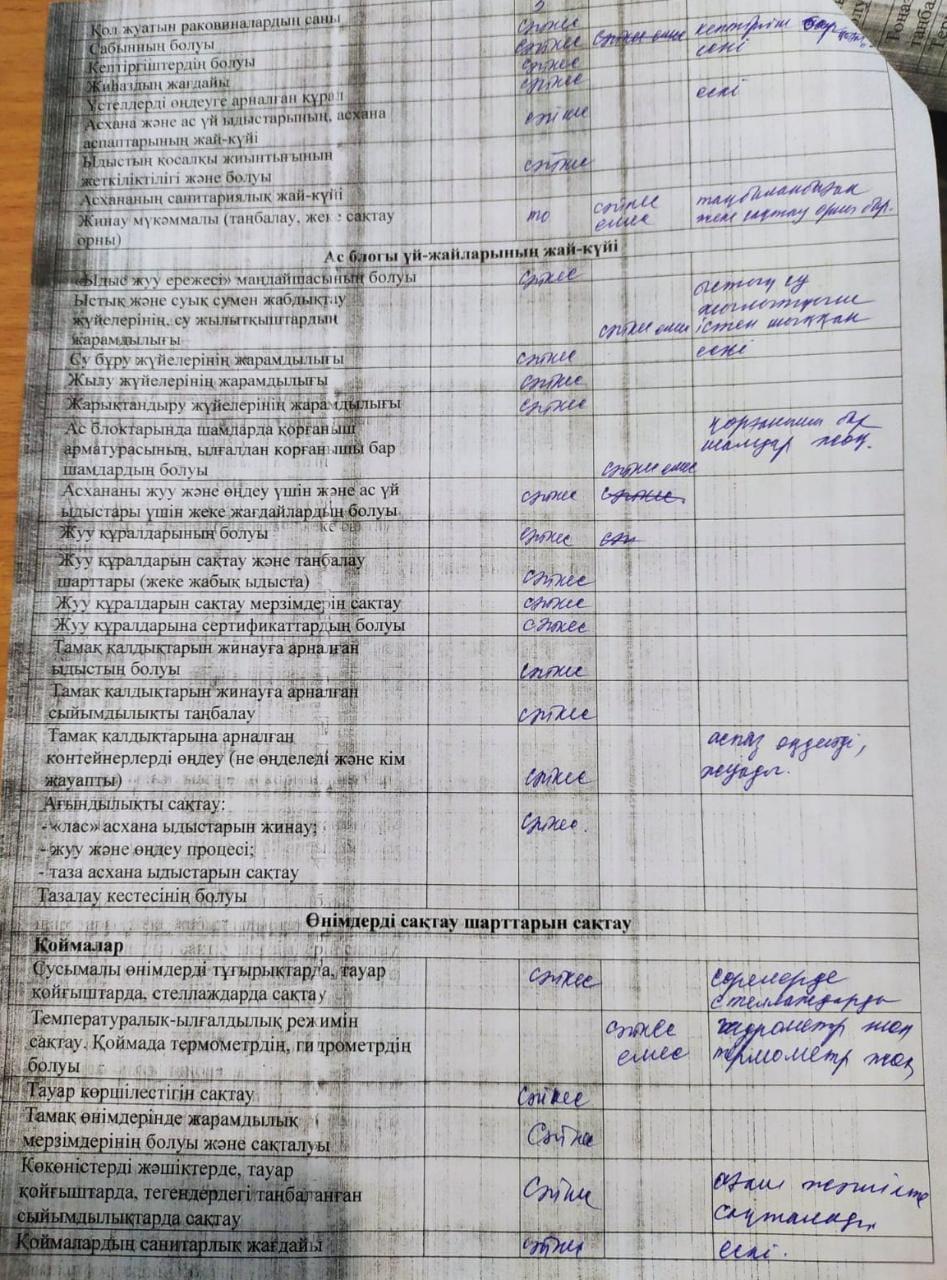 3
Қол жуатын раковиналардың саны сәйкес
Сабынның болуы сәйкес сәйкес емес кептіргіш бар
Кептіргіштердің болуы сәйкес ескі
Жиһаздың жағдайы сәйкес
Үстелдерді өңдеуге арналған құрал ескі
Асхана және ас үй ыдыстарының, асхана сәйкес
аспаптарының жай-күйі
Ыдыстың қосалқы жиынтығының сәйкес
жеткіліктілігі және болуы
Асхананың санитариялық жай-күйі
Жинау мүкәммалы (таңбалау, жеке сақтау то сәйкес емес таңбаланбаған
орны) жеке сақтау орны бар.
Ас блогы үй-жайларының жай-күйі
«Ыдыс жуу ережесі» маңдайшасының болуы сәйкес
Ыстық және суық сумен жабдықтау ыстық су
жүйелерінің, су жылытқыштардың жылытқышы
жарамдылығы сәйкес емес істен шыққан
Су бұру жүйелерінің жарамдылығы сәйкес ескі
Жылу жүйелерінің жарамдылығы сәйкес
Жарықтандыру жүйелерінің жарамдылығы сәйкес
Ас блоктарында шамдарда қорғаныш қорғанышы бар
арматурасының, ылғалдан қорғанышы бар шамдар жоқ.
шамдардың болуы сәйкес емес
Асхананы жуу және өңдеу үшін және ас үй сәйкес сәйкес
ыдыстары үшін жеке жағдайлардың болуы
Жуу құралдарының болуы сәйкес сәй
Жуу құралдарын сақтау және таңбалау
шарттары (жеке жабық ыдыста) сәйкес
Жуу құралдарын сақтау мерзімдерін сақтау сәйкес
Жуу құралдарына сертификаттардың болуы сәйкес
Тамақ қалдықтарын жинауға арналған
ыдыстың болуы сәйкес
Тамақ қалдықтарын жинауға арналған
сыйымдылықты таңбалау сәйкес
Тамақ қалдықтарына арналған аспаз өңдейді,
контейнерлерді өңдеу (не өңделеді және кім жуады.
жауапты) сәйкес
Ағындылықты сақтау:
- «лас» асхана ыдыстарын жинау; сәйкес.
- жуу және өңдеу процесі;
- таза асхана ыдыстарын сақтау
Тазалау кестесінің болуы
Өнімдерді сақтау шарттарын сақтау
Қоймалар
Сусымалы өнімдерді тұғырықтарда, тауар сәйкес сөрелерде
қойғыштарда, стеллаждарда сақтау стеллаждарда
Температуралық-ылғалдылық режимін сәйкес гидрометр жоқ
сақтау. Қоймада термометрдің, гигрометрдің емес термометр жоқ
болуы
Тауар көршілестігін сақтау сәйкес
Тамақ өнімдерінде жарамдылық сәйкес
мерзімдерінің болуы және сақталуы
Көкөністерді жәшіктерде, тауар ағаш жәшікте
қойғыштарда, тегендердегі таңбаланған сәйкес сақталады
сыйымдылықтарда сақтау
Қоймалардың санитарлық жағдайы сәйкес ескі.